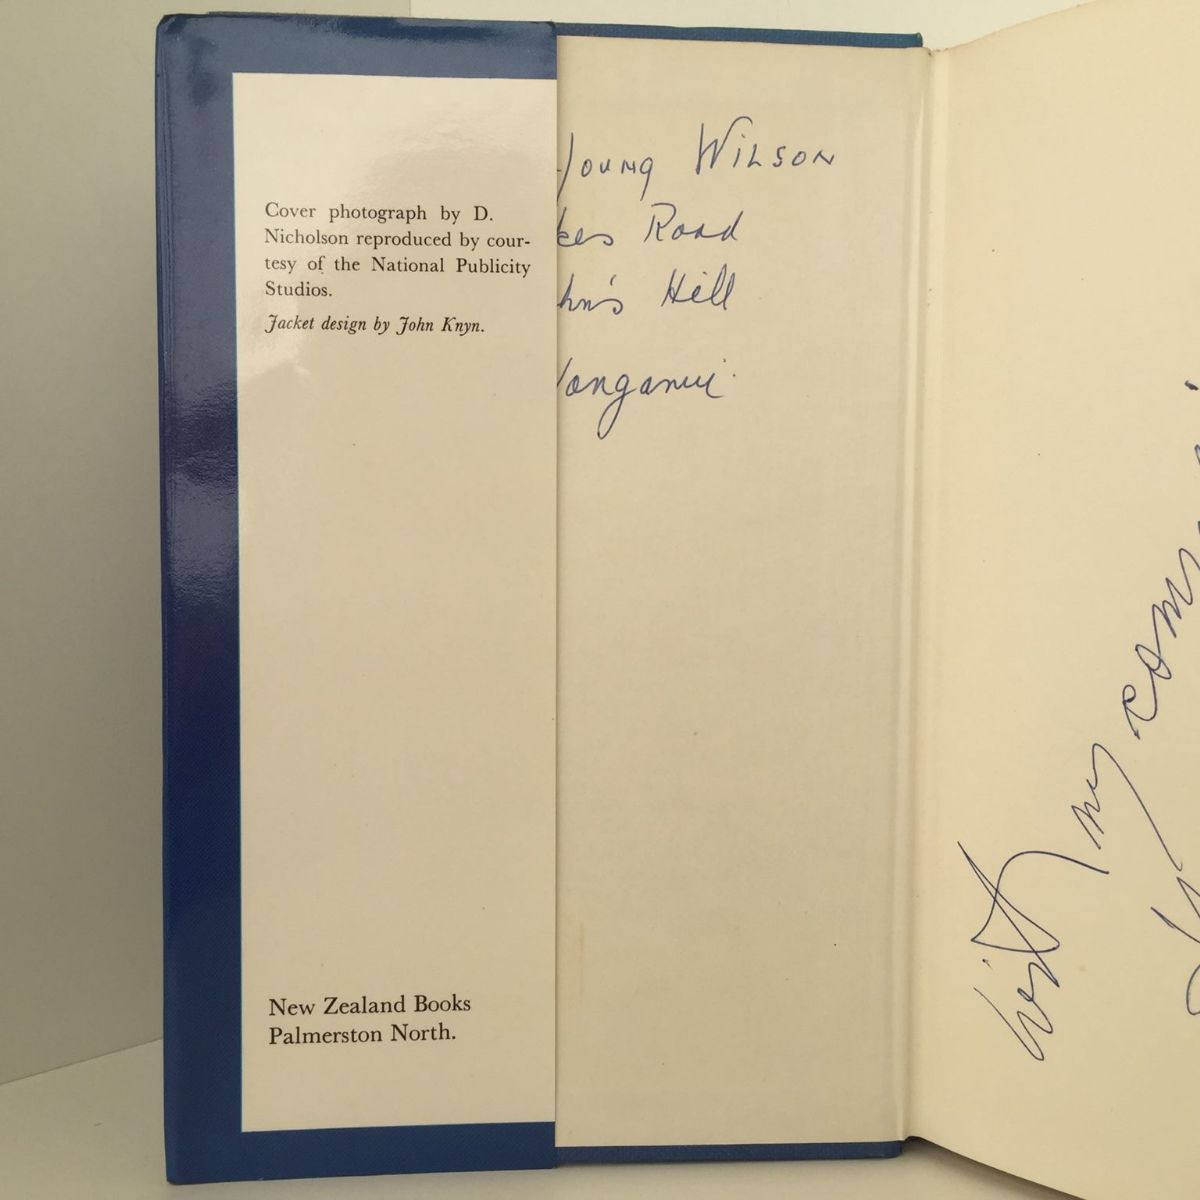 Cover photograph by D.
Nicholson reproduced by cour-
tesy of the National Publicity
Studios.
Jacket design by John Knyn.
New Zealand Books
Palmerston North.
Young WILSON
kes Road
hn's Hill
anganui
With my com